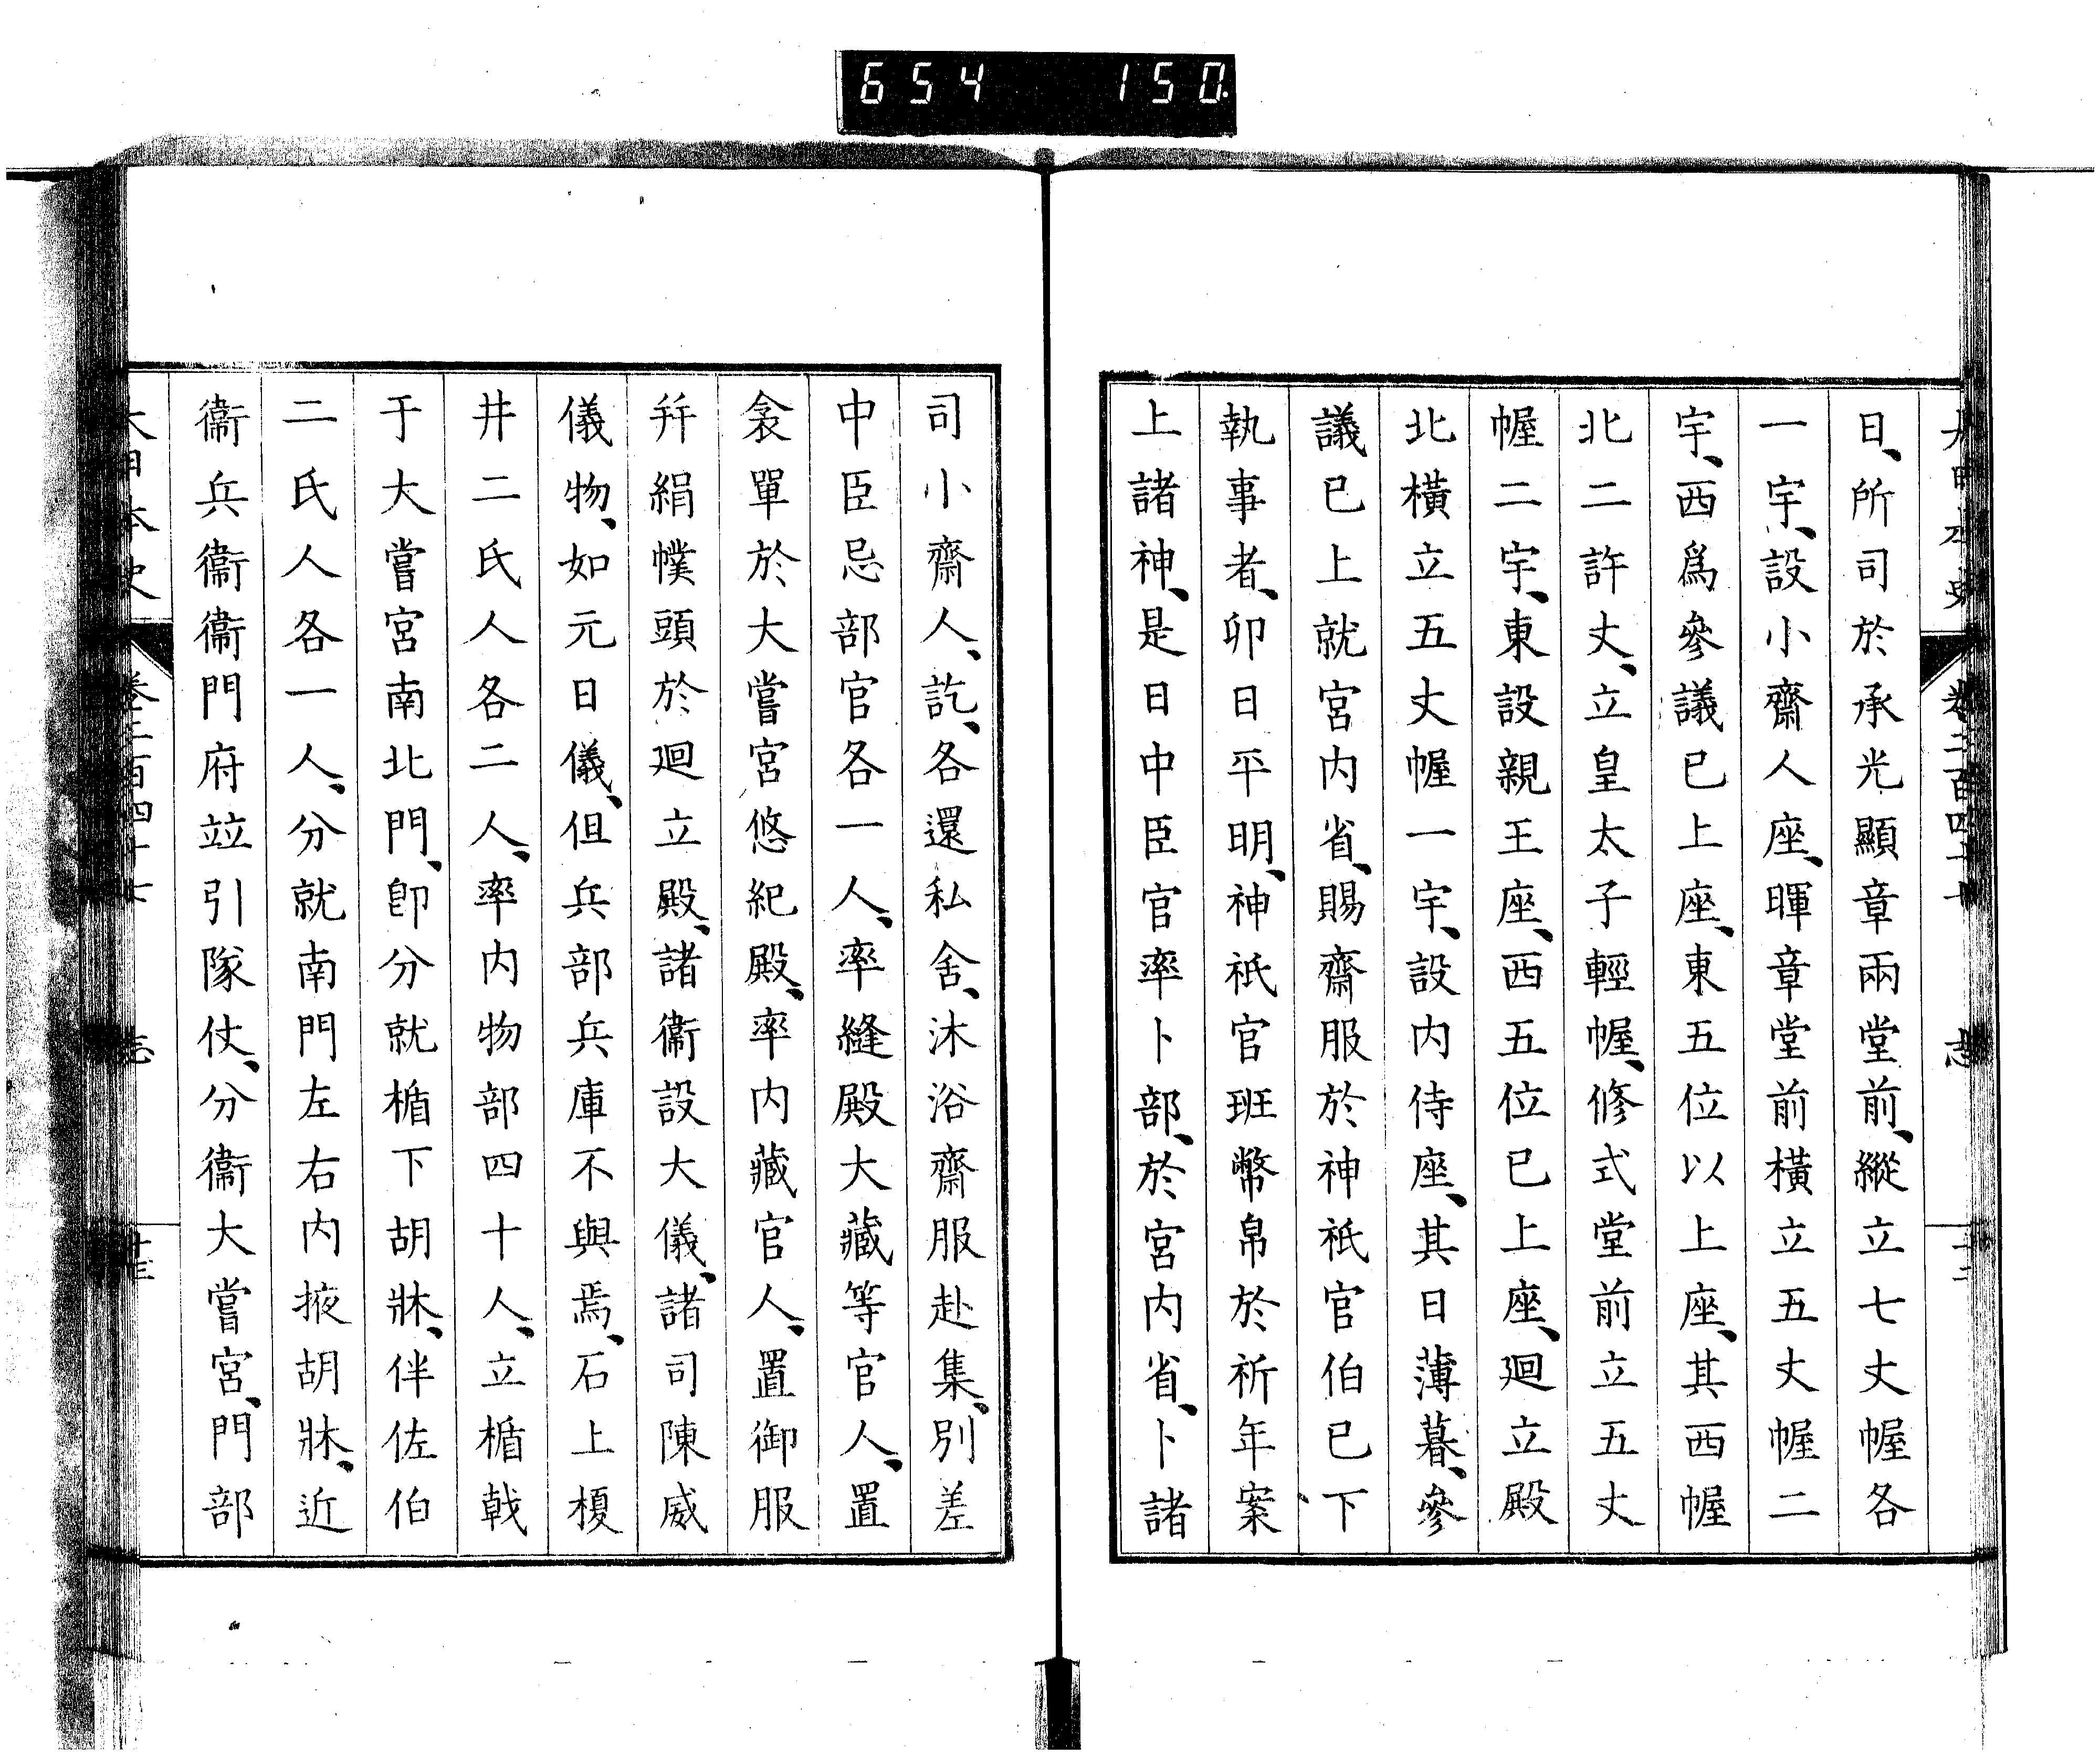 654 150
日、所司於承光顯章兩堂前、縱立七丈幄各
一宇、設小齋人座、暉章堂前橫立五丈幄二
宇、西爲參議已上座、東五位以上座、其西幄
北二許丈、立皇太子輕幄、修式堂前立五丈
幄二宇、東設親王座、西五位已上座、廻立殿
北橫立五丈幄一宇、設内侍座、其日薄暮、參
議已上就宮内省、賜齋服於神祇官伯已下
執事者、卯日平明、神祇官班幣帛於祈年案
上諸神、是日中臣官率卜部、於宮内省、卜諸
司小齋人、訖、各還私舍、沐浴齋服赴集、別差
中臣忌部官各一人、率縫殿大藏等官人、置
衾單於大嘗宮悠紀殿、率内藏官人、置御服
幷絹幞頭於廻立殿、諸衞設大儀、諸司陳威
儀物、如元日儀、但兵部兵庫不與焉、石上榎
井二氏人各二人、率内物部四十人、立楯戟
于大嘗宮南北門、卽分就楯下胡牀、伴佐伯
二氏人各一人、分就南門左右内掖胡牀、近
衞兵衞衞門府竝引隊仗、分衞大嘗宮、門部
大日本史 卷二百四十七 志